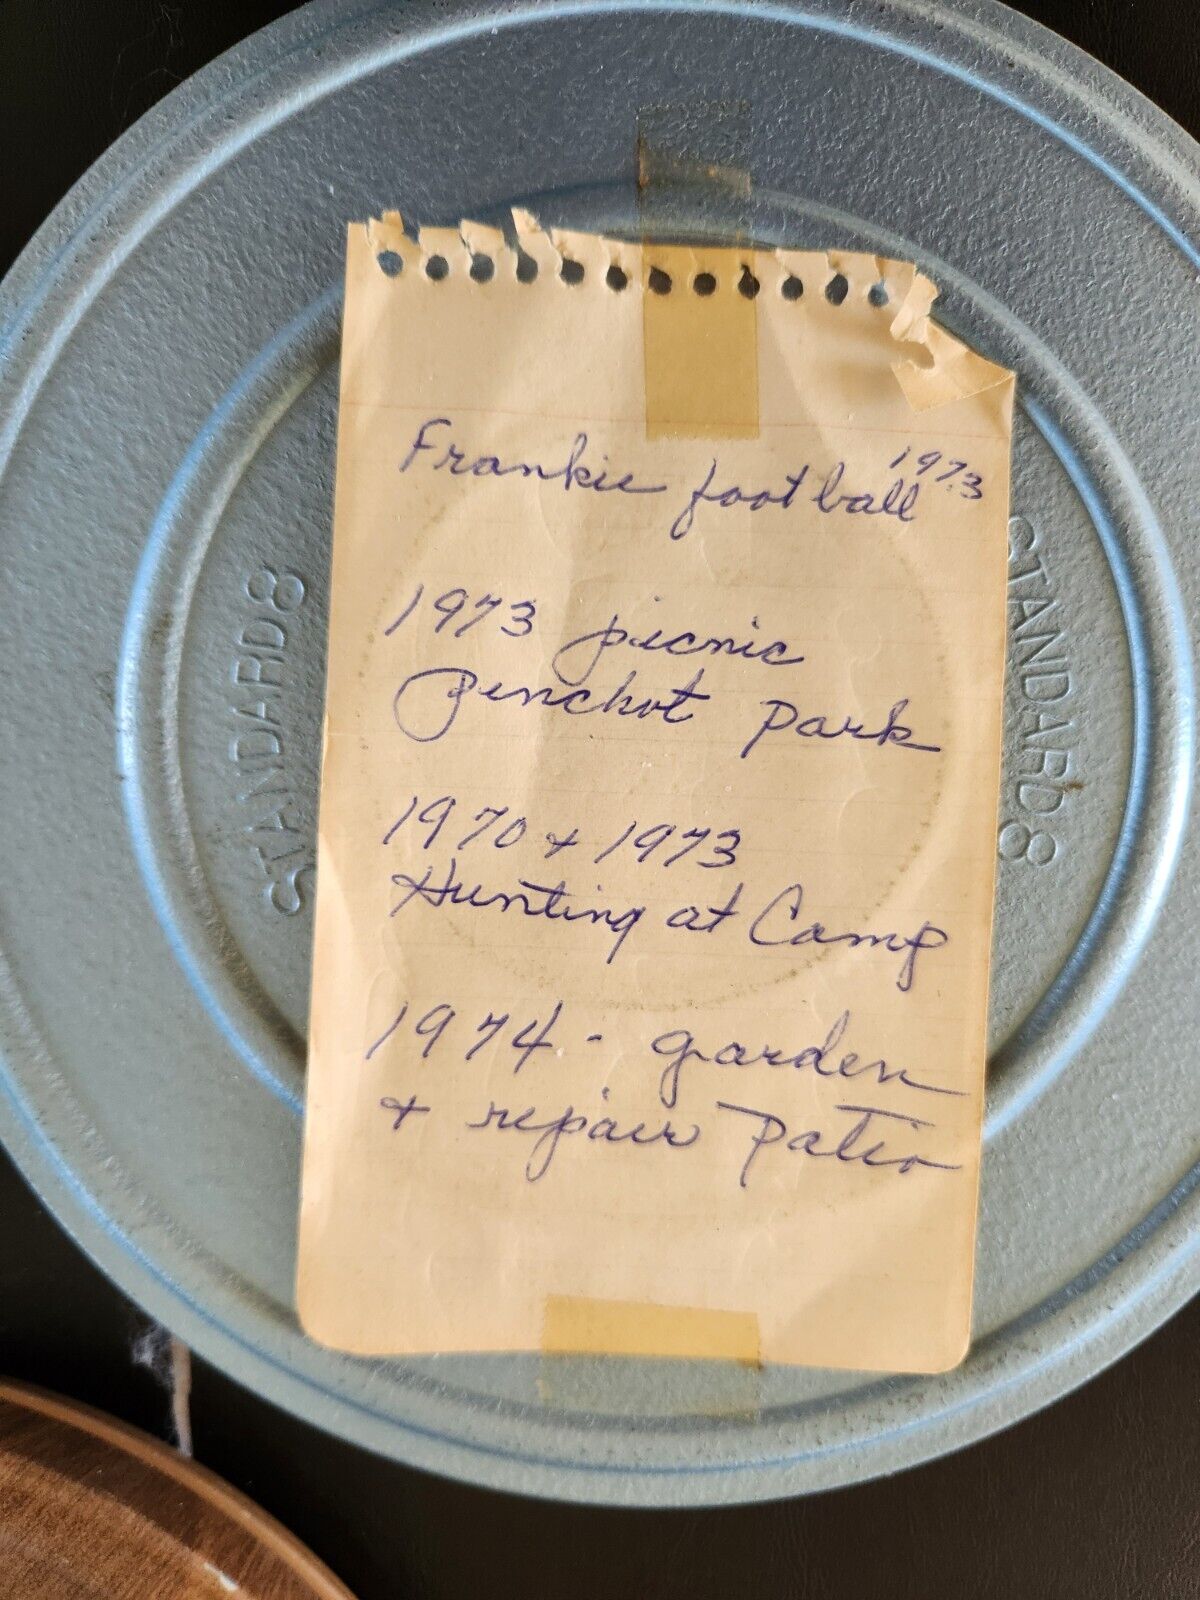 Frankie football 1973
1973 picnic
Penchot Park
1970 + 1973
Hunting at Camp
1974 - garden
+ repair Patio
STANDARD8
STANDARD8